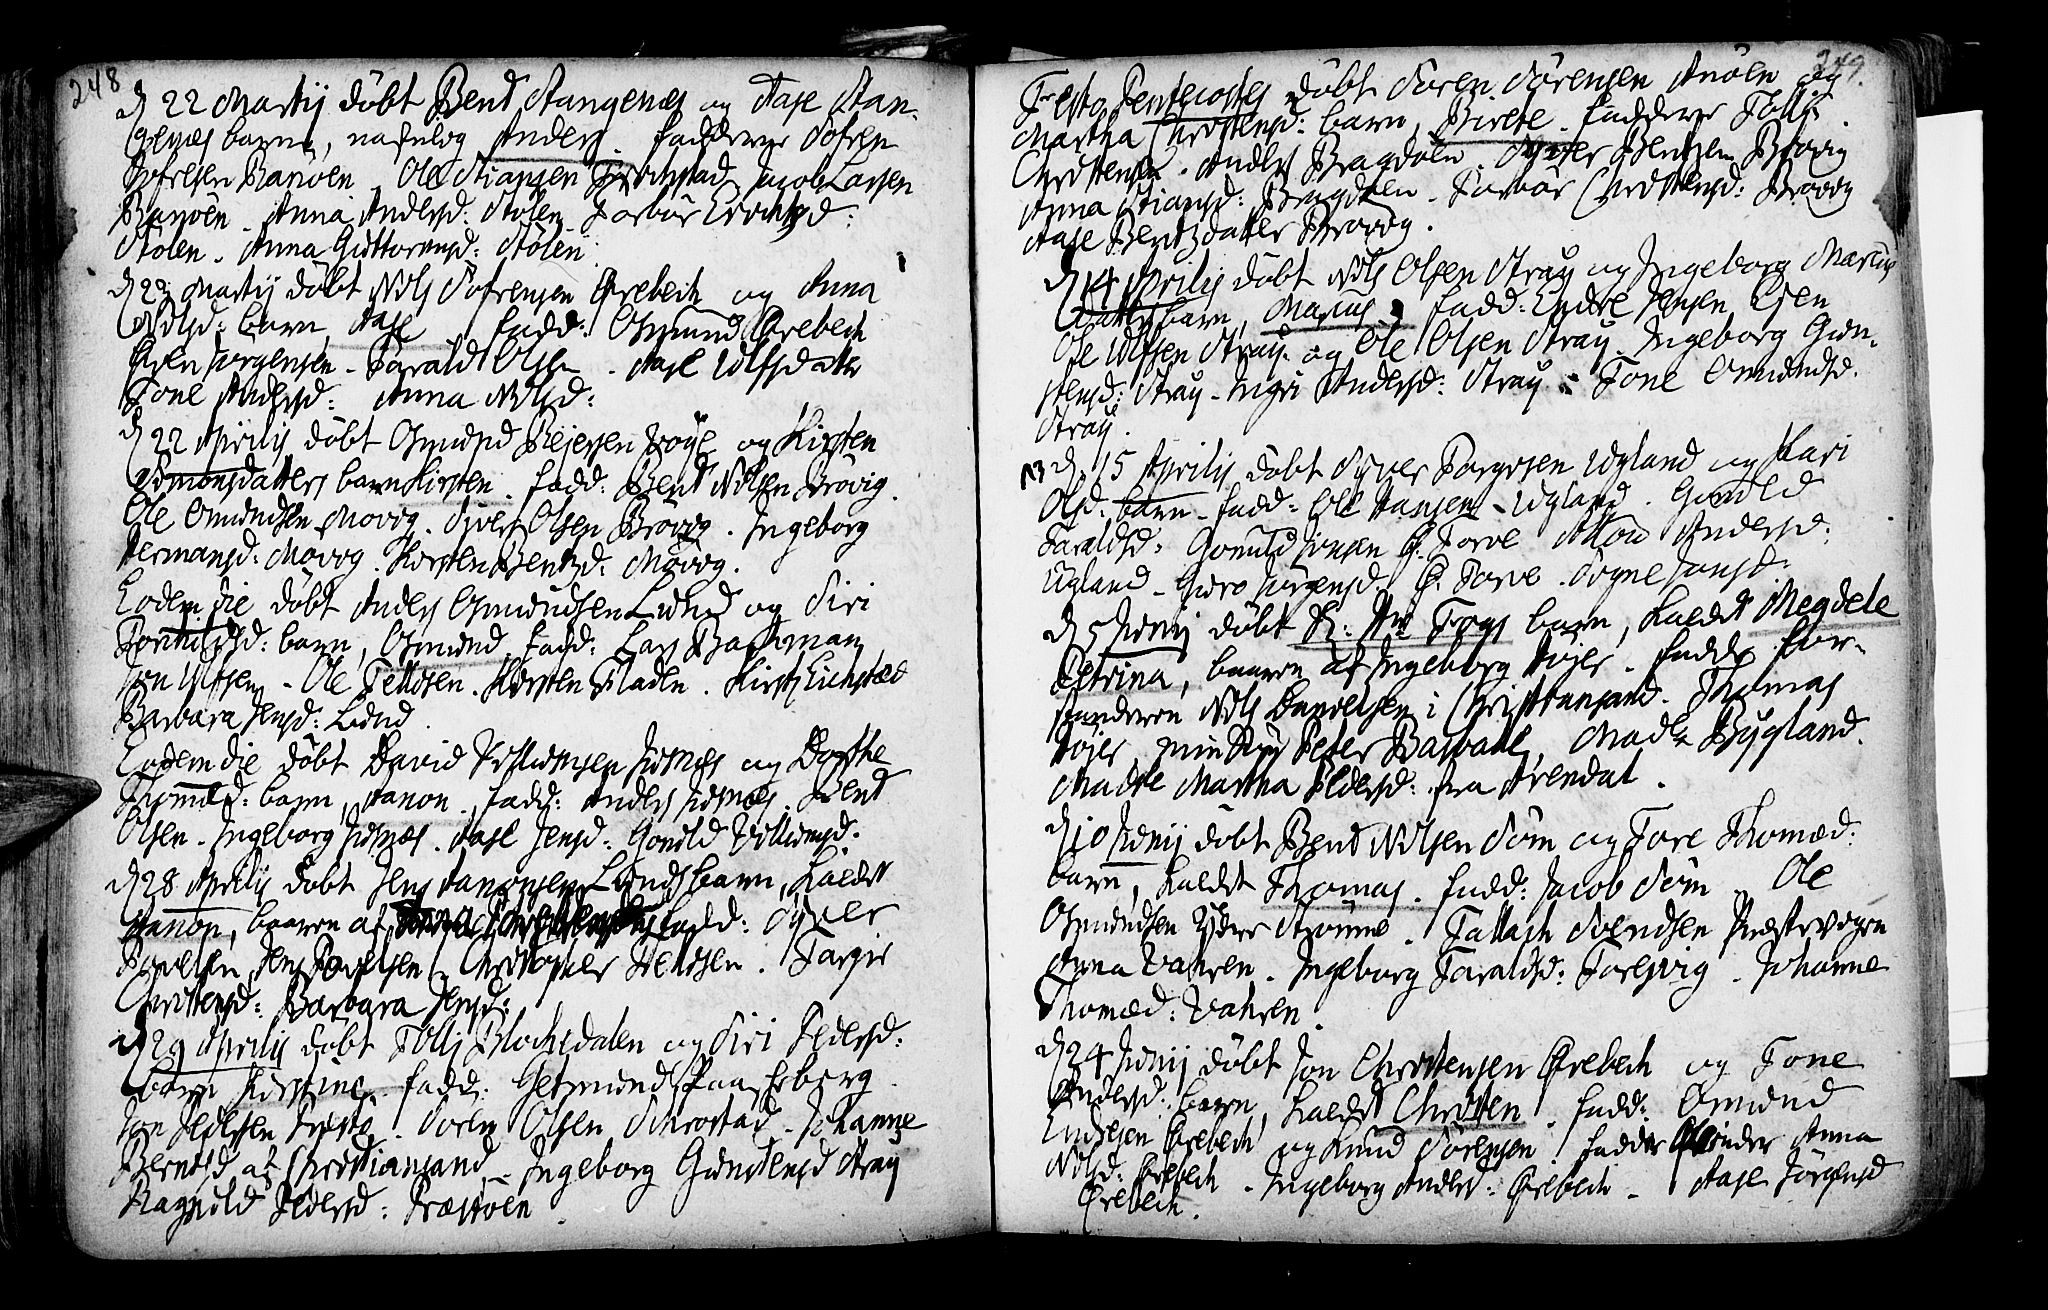 248
d 22 Martij döbt Bent Stangenes og Aase Stan-
genes barn, nafnlig Anders. fadderne Sofren
Sofrensen Ranöen. Ole Stiansen Jacob Larsen
Ranöen. Anna Andersd: Stölen Torbör
Stölen. Anna Guttormsd: Stölen.
d Martij döbt Nils Sofrensen Örebech og Anna
Nilsd: barn, Aase fadd: Osmund Örebech
Jörgensen - Tarald Olsen. Aase Ulfsdatter
Tone Andersd: Anna Nilsd:
d 22 Aprilis döbt Osmund Rejersen og Kirsten
Simonsdatters barn Kirsten. fadd: Bent Nilsen Brövig.
Ole Omundsen Movig. Siver Olsen Brövig. Ingeborg
Hermansd: Movig. Kirsten Bentsd: Movig.
Eodem die döbt Anders Osmundsen Lund og Siri
barn, Osmund fadd: Lars Bachman
Jon Ulfsen - Ole Tellofsen. Kirsten Fladen. Kirst:
Barbara Jensd: Lund.
Eodem die döbt David Villumsen og Dorthe
barn, Hanon, fadd: Anders Bent
Olsen. Ingeborg Aase Jensd: Gonild Villumsd.
d 28 Aprilis döbt Jens Hanonsen Lunds barn, kaldet
Hanon, baaren af fadd: Syver
Povelsen, Jens Povelsen Christopher Jensen. Targier
Christensd: Barbara Jensd:
d 29 Aprilis döbt Tollij Blochedalen og Siri Pedersd:
barn Kirstine. fadd: Germund Paa
Jon Pedersen Sören Olsen Johanne
Berntsd af Christiansand, - Ingeborg Gunstensd Stray
Ragnild Pedersd: Præstöen.
249.
Festo Pentecostes döbt Sören Sörensen Andöen og
Martha Christensd: barn, Birete. fadderne Tollif
Christensen. Anders Bragdöen. Syver Bentsen Brövig
Anna Stiansd: Bragdöen. Torbör Christensd: Brövig
Aase Bentzdatter Brövig.
d 14 Aprilis döbt Nils Olsen Stray og Ingeborg Marcus
datters barn, Marcus, fadd: Endre Jensen
Ole Ulfsen Stray. og Ole Olsen Stray Ingeborg Gun-
stensd: Stray - Ingri Andersd: Stray. Tone Omundsd.
Stray.
d. 15 Aprilis döbt Syver Torgrsen Ugland og Kari
Olsd: barn - fadd: Ole Hansen - Ugland. Gonild
Taraldsd: Gonuld Jonsen Ö. Torve Andersd:
Ugland - Guro Jörgensd. Ö. Torve. Signe Jonsd:
d 5 Junij döbt Hr: Fogs barn, kaldet Megdele
Petrina, baaren af Ingeborg Höjer. fadd: for-
standeren Nils Danielsen i Christiansand. Thomas
Höjer min Peter Madle Bygland.
Madle Martha Pedersd: fra Arendal.
d 10 Junij döbt Bent Nilsen Söm og Tore Thomæd:
barn, kaldet Thomas. fadd: Jacob Söm. Ole
Osmundsen Yttre Strömme. Tallach Svendsen Præstevogen
Anna Vahren. Ingeborg Taraldsd: Torsvig. Johanne
Thomæd: Vahren.
d 24 Junij döbt Jon Christensen Örebech og Tone
Andersd: barn, kaldet Christen. fadd: Omund
Endresen Örebech og Knud Sörensen. Anna
Nilsd: Örebech - Ingeborg Andersd: Örebech - Aase Jörgensd
Örebech.